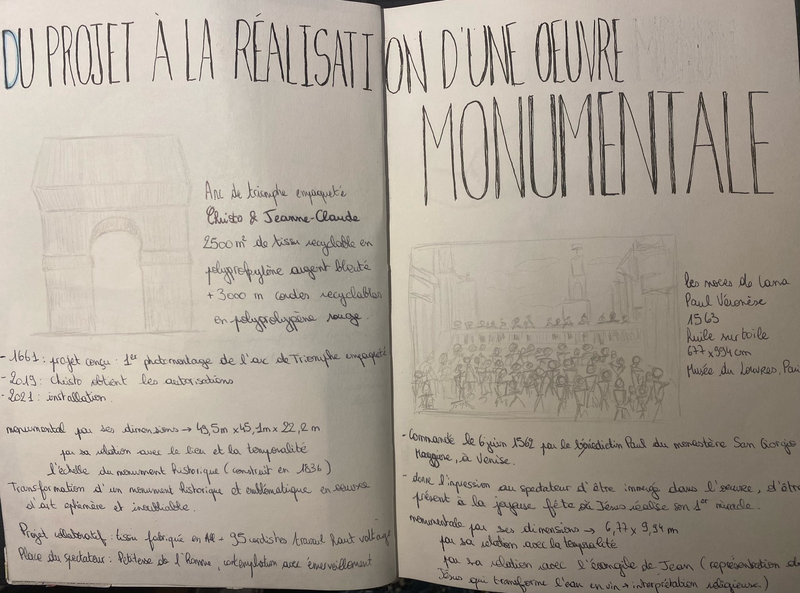 DU PROJET À LA RÉALISATION D'UNE OEUVRE
MONUMENTALE
Arc de triomphe empaqueté
Christo & Jeanne-Claude
2500 m² de tissu recyclable en
polypropylène argent bleuté
+ 3000 m cordes recyclables
en polyprolypène rouge.
- 1661 : projet conçu : 1er photomontage de l'arc de Triomphe empaqueté
- 2019 : Christo obtient les autorisations
- 2021 : installation.
monumental par ses dimensions → 49,5m x 45,1m x 22,2 m
par sa relation avec le lieu et la temporalité
l'échelle du monument historique (construit en 1836)
Transformation d'un monument historique et emblématique en oeuvre
d'art ephémère et inoubliable.
Projet collaboratif : tissu fabriqué en All + 95 cordistes travail haut voltage
Place du spectateur : Petitesse de l'Homme, contemplation avec émerveillement
les noces de Cana
Paul Véronèse
1563
huile sur toile
677 x 994 cm
Musée du Louvres, Pari
- Commandé le 6 juin 1562 par le bénédictin Paul du monastère San Giorgio
Maggiore, à Venise.
- donne l'inpression au spectateur d'être immergé dans l'oeuvre, d'être
présent à la joyeuse fête où Jésus réalise son 1er miracle.
monumentale par ses dimensions → 6,77 x 9,94 m
par sa relation avec la temporalité
par sa relation avec l'évangile de Jean (représentation de
Jésus qui transforme l'eau en vin → interprétation religieuse.)